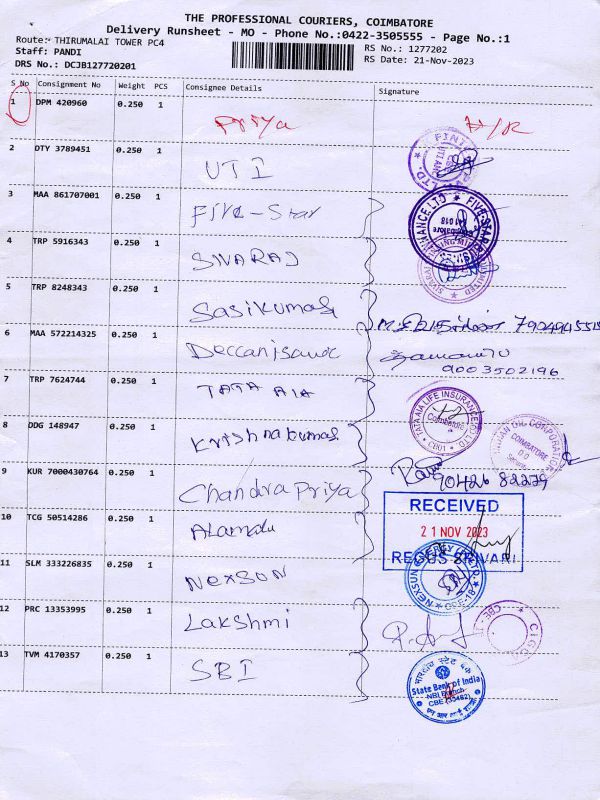 THE PROFESSIONAL COURIERS, COIMBATORE
Delivery Runsheet - MO - Phone No.:0422-3505555 - Page No.:1
Route: THIRUMALAI TOWER PC4
Staff: PANDI
DRS No.: DCJB127720201
RS No.: 1277202
RS Date: 21-Nov-2023
S No Consignment No Weight PCS Consignee Details Signature
1 DPM 420960 0.250 1 Priya H/R
2 DTY 3789451 0.250 1 UTI
3 MAA 861707001 0.250 1 Five-Star
4 TRP 5916343 0.250 1 SIVARAJ
5 TRP 8248343 0.250 1 Sasikumar
6 MAA 572214325 0.250 1
9003502196
7 TRP 7624744 0.250 1 TATA AIA
TATA AIA LIFE INSURANCE CO LTD
Coimbatore
8 DDG 148947 0.250 1 Krishnakumar
INDIAN OIL CORPORATION
COIMBATORE
D.O
9 KUR 7000430764 0.250 1 Chandra Priya
90426 82229
RECEIVED
21 NOV 2023
REGUS SRIVARI
10 TCG 50514286 0.250 1 Alamelu
11 SLM 333226835 0.250 1 Nexson
12 PRC 13353995 0.250 1 Lakshmi
13 TVM 4170357 0.250 1 SBI
भारतीय स्टेट बैंक
State Bank of India
NRI Branch